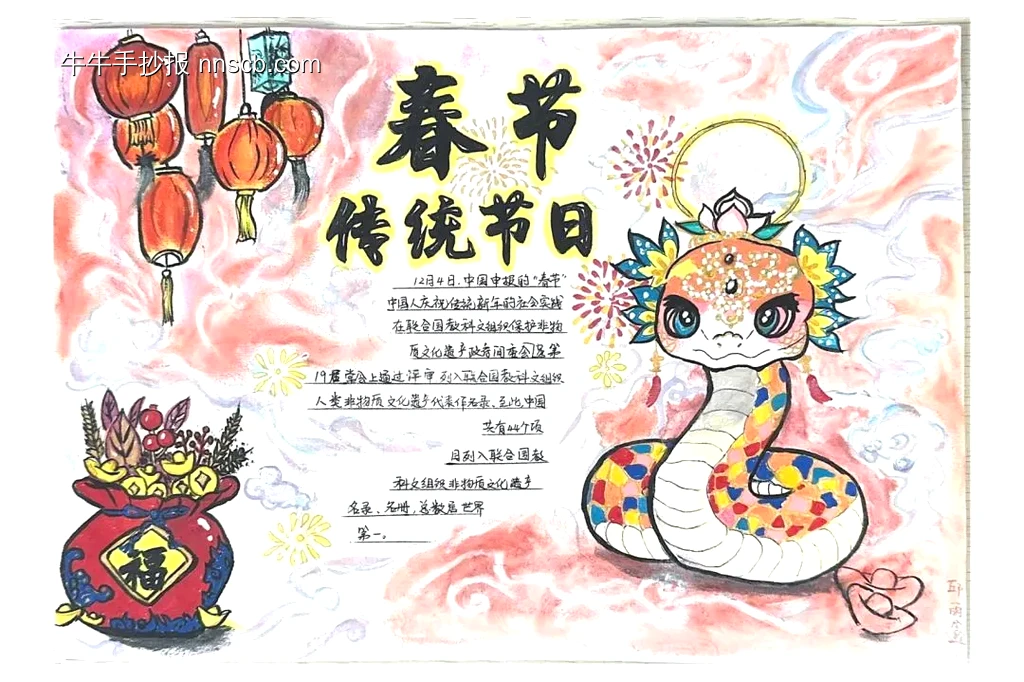 牛牛手抄报 nnscb.com
春节
传统节日
12月4日,中国申报的“春节”
中国人庆祝传统新年的社会实践
在联合国教科文组织保护非物
质文化遗产政府间委会
19届常会上通过评审列入联合国教科文组织
人类非物质文化遗产代表作名录、至此中国
共有44个项
目列入联合国教
科文组织非物质文化遗产
名录、名册,总数居世界
第一。
福